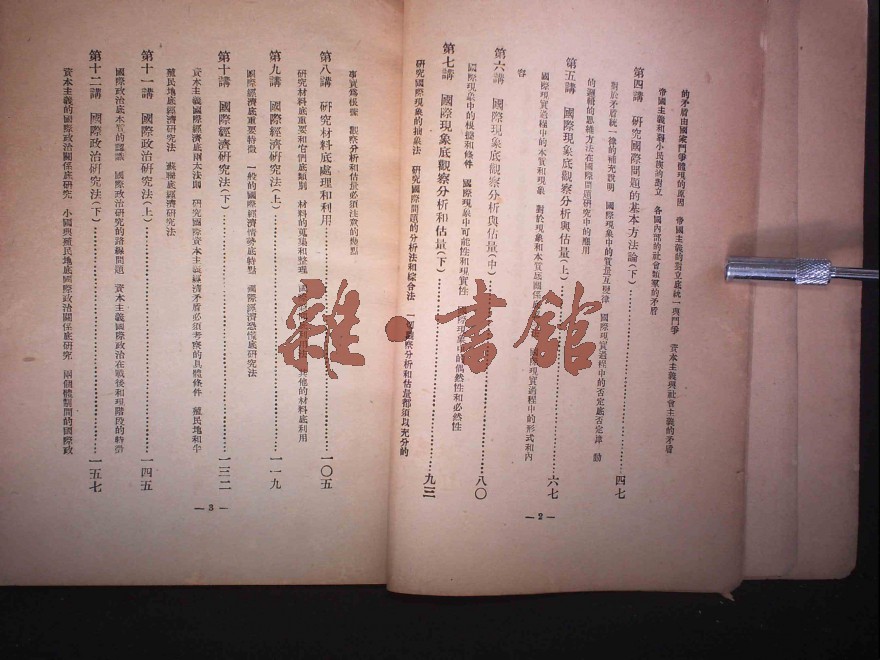 的矛盾由國家鬥爭體現的原因　帝國主義的對立底統一與鬥爭　資本主義與社會主義的矛盾
帝國主義和弱小民族的對立　各國內部的社會類羣的矛盾
第四講　研究國際問題的基本方法論（下）……四七
對於矛盾統一律的補充說明　國際現象中的質量互變律　國際現實過程中的否定底否定律　動
的邏輯的思維方法在國際問題研究中的應用
第五講　國際現象底觀察分析與估量（上）……六七
國際現實過程中的本質和現象　對於現象和本質底關係底　國際現實過程中的形式和內
容
第六講　國際現象底觀察分析與估量（中）……八〇
國際現象中的根據和條件　國際現象中可能性和現實性　現象中的偶然性和必然性
第七講　國際現象底觀察分析和估量（下）……九三
研究國際現象的抽象法　研究國際問題的分析法和綜合法　一切觀察分析和估量都須以充分的
—2—
事實爲根據　觀察分析和估量必須注意的動點
第八講　研究材料底處理和利用……一〇五
研究材料底重要和它們底類別　材料的蒐集和整理　國際　其他的材料底利用
第九講　國際經濟研究法（上）……一一九
國際經濟底重要特徵　一般的國際經濟情勢底特點　國際經濟恐慌底研究法
第十講　國際經濟研究法（下）……一三二
資本主義國際經濟底兩大法則　研究國際資本主義經濟矛盾必須考察的具體條件　殖民地和半
殖民地底經濟研究法　蘇聯底經濟研究法
第十一講　國際政治研究法（上）……一四五
國際政治底本質的認識　國際政治研究的路線問題　資本主義國際政治在戰後和現階段的特徵
第十二講　國際政治研究法（下）……一五七
資本主義的國際政治關係底研究　小國與殖民地底國際政治關係底研究　兩個體制間的國際政
—3—
雜·書館